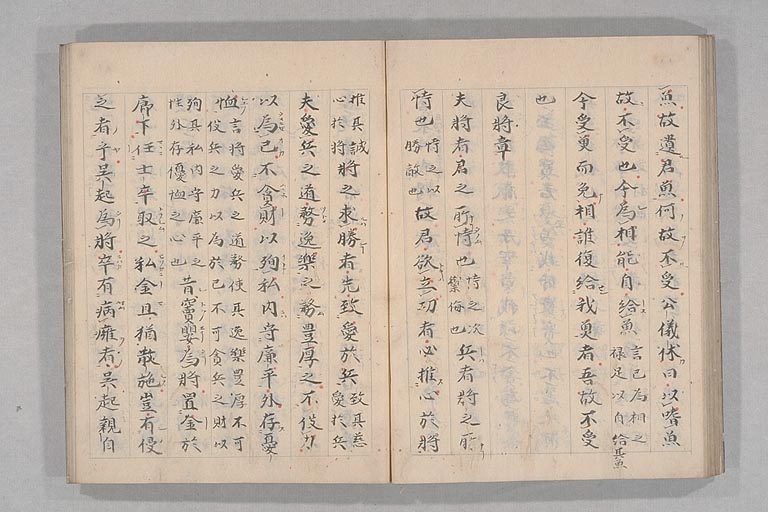 魚故遺君魚何故不受公儀休曰以嗜魚
故不受也今為相能自給魚言已為相之祿足以自給其魚
今受魚而免相誰復給我魚者吾故不受
也
良將章
夫將者君之所恃也恃之次禦侮也兵者將之所
恃也恃之以勝敵也故君欲立功者必推心於將
推其誠心於將將之求勝者先致愛於兵致其慈愛於兵
夫愛兵之道務逸樂之務豊厚之不役力
以為己不貪財以殉私內守廉平外存憂
恤言將愛兵之道務使其逸樂豊厚不可役兵之力以為於己不可貪兵之財以
殉其私內守廉平之性外存優恤之心也昔竇嬰為將置金於
廊下任士卒取之私金且猶散施豈有侵
之者乎吴起為將卒有病癰者吴起親自